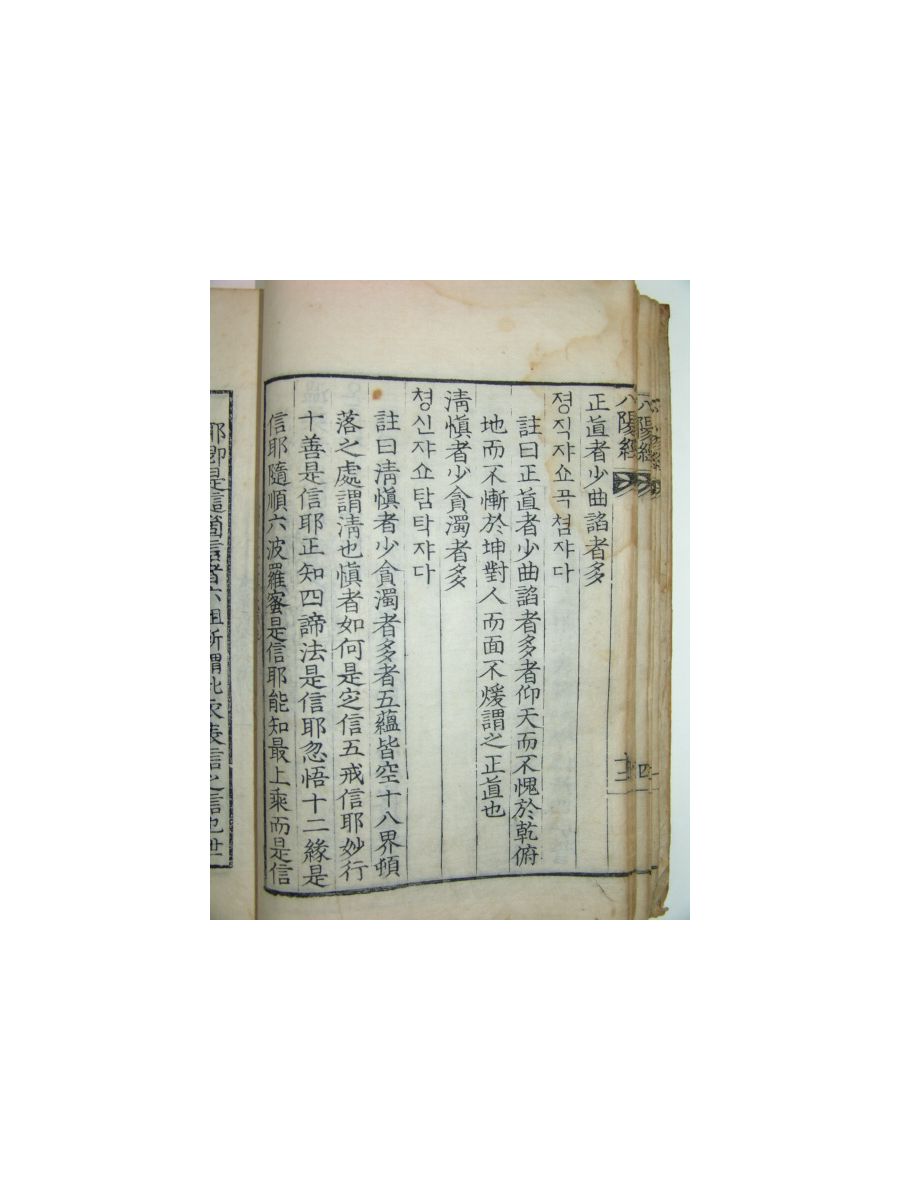 八陽經
八陽經
正直者少曲諂者多
졍직쟈쇼곡쳠쟈다
註曰正直者少曲諂者多者仰天而不愧於乾俯
地而不慚於坤對人而面不煖謂之正直也
淸愼者少貪濁者多
쳥신쟈쇼탐탁쟈다
註曰淸愼者少貪濁者多者五蘊皆空十八界頓
落之處謂淸也愼者如何是定信五戒信耶妙行
十善是信耶正知四諦法是信耶忽悟十二緣是
信耶隨順六波羅蜜是信耶能知最上乘而是信
耶卽是這箇信者六祖所謂此衣表信之信也世